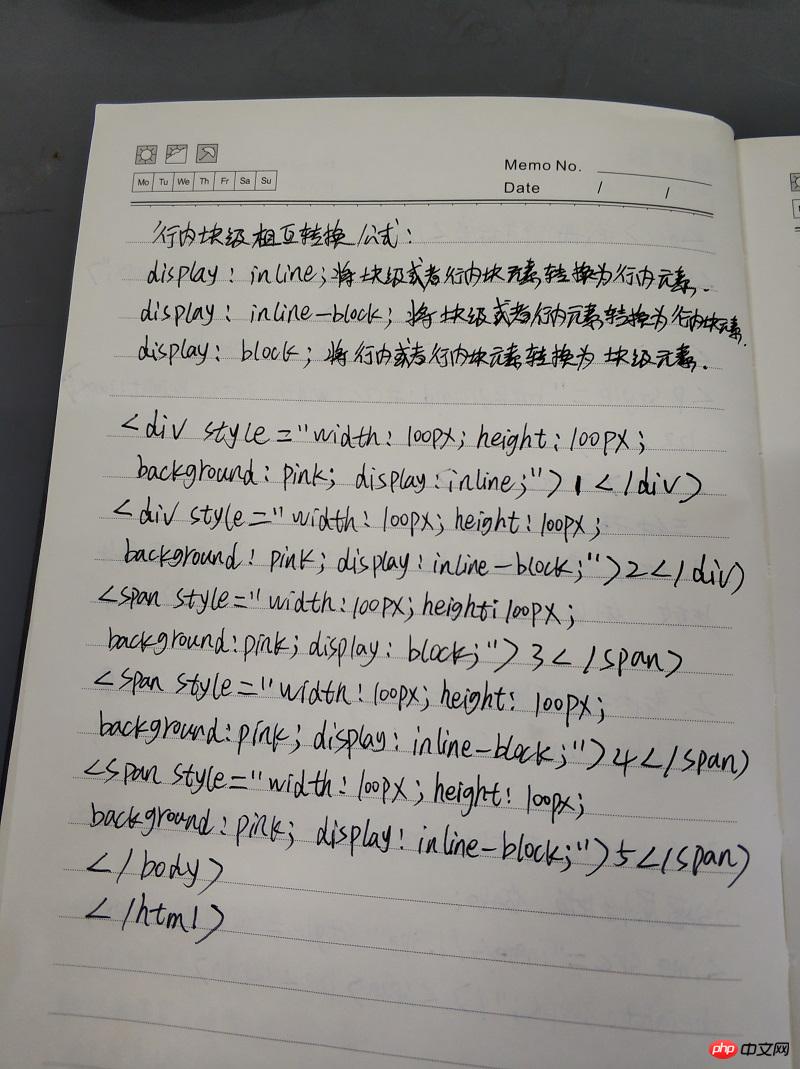 Mo Tu We Th Fr Sa Su
Memo No.
Date / /
行内块级相互转换公式:
display: inline; 将块级或者行内块元素转换为行内元素.
display: inline-block; 将块级或者行内元素转换为行内块元素.
display: block; 将行内或者行内块元素转换为块级元素.
<div style="width: 100px; height: 100px;
background: pink; display: inline;">1</div>
<div style="width: 100px; height: 100px;
background: pink; display: inline-block;">2</div>
<span style="width: 100px; height: 100px;
background: pink; display: block;">3</span>
<span style="width: 100px; height: 100px;
background: pink; display: inline-block;">4</span>
<span style="width: 100px; height: 100px;
background: pink; display: inline-block;">5</span>
</body>
</html>
php 中文网